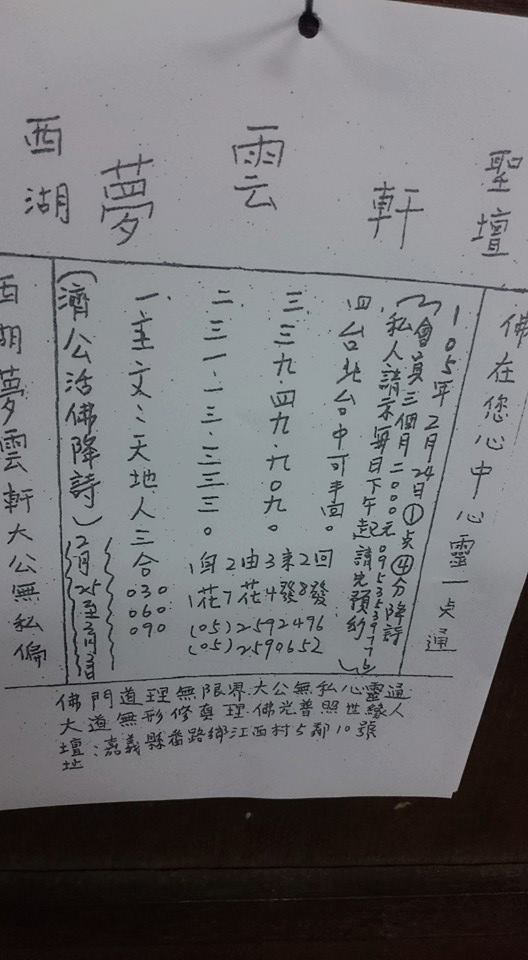 西湖夢雲軒聖壇
佛在您心中心靈一点通
105年2月24日①点④分降詩
(會員三個月二000元
私人請示每日下午起請先預約)
四台北台中可手面。
三.三九.四九.九0九0。
二.三一.一三.三三三。
一.主文:天地人三合
1自2由3來2回
1花7花4發8發
(05)2592496
(05)2590652
030
060
090
(濟公活佛降詩)2月25至3月3日
西湖夢雲軒大公無私偏
佛門道理無限界.大公無私心靈通
大道無形修真理.佛光普照世緣人
壇址:嘉義縣番路鄉江西村5鄰10號